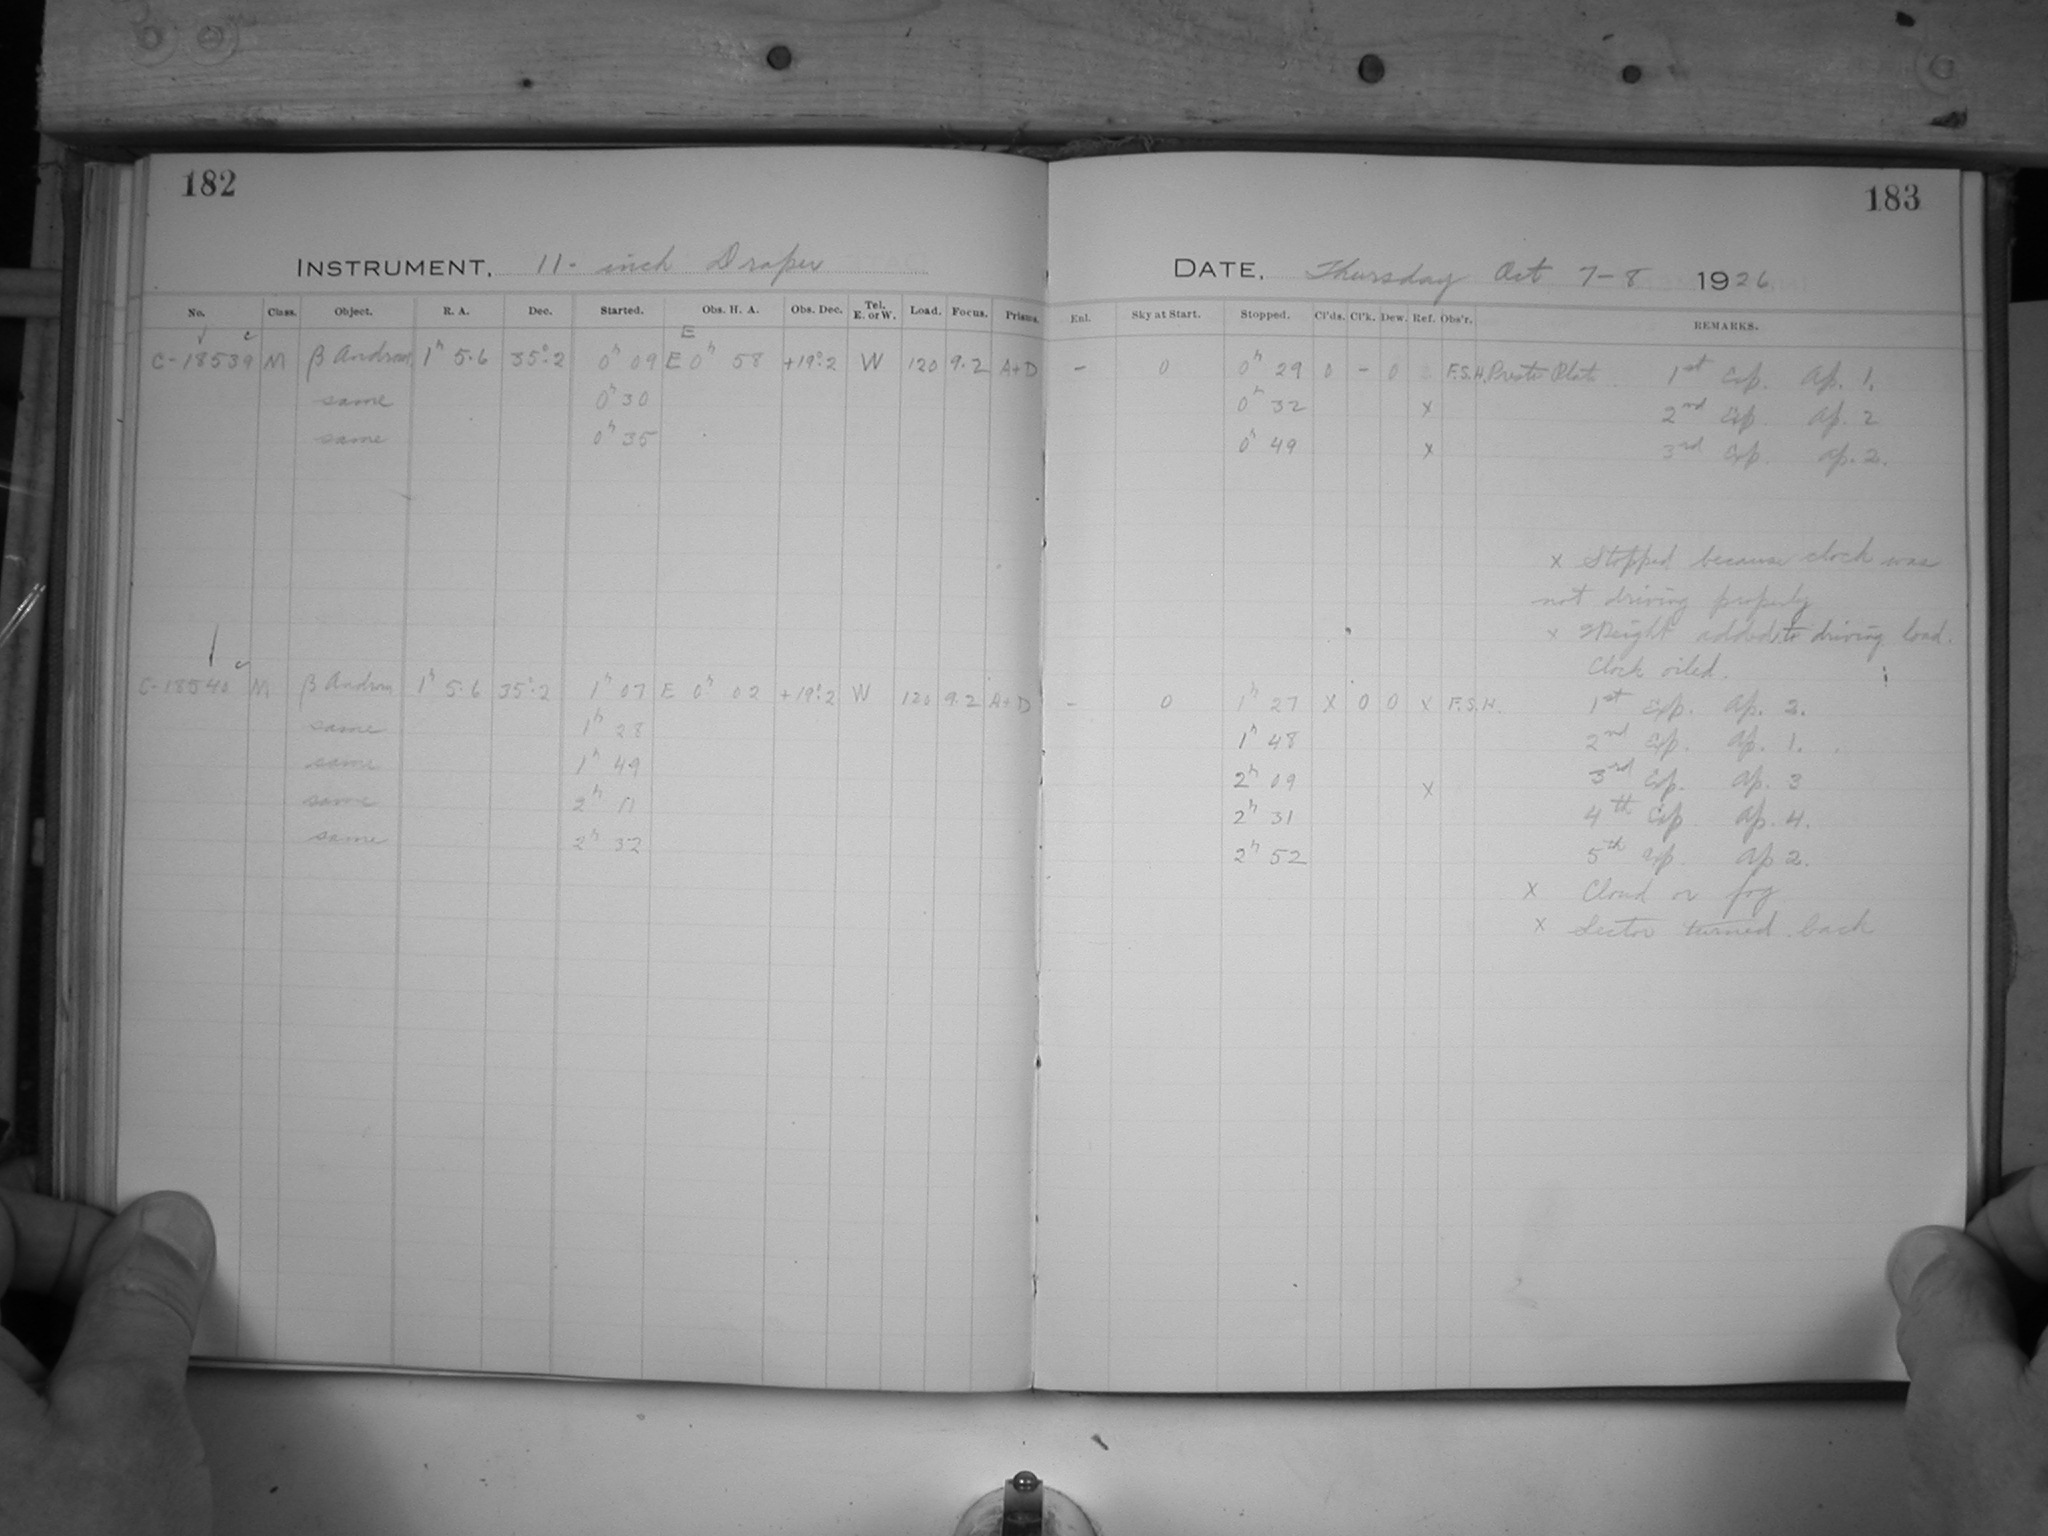 182
INSTRUMENT, 11-inch Draper
No. Class. Object. R. A. Dec. Started. Obs. H. A. Obs. Dec. Tel. E. or W. Load. Focus. Prisms.
E
C-18539 M β Androm. 1h 5.6 35°.2 0h 09 E 0h 58 +19°.2 W 120 9.2 A+D
same 0h 30
same 0h 35
C-18540 M β Androm 1h 5.6 35°.2 1h 07 E 0h 02 +19°.2 W 120 9.2 A+D
same 1h 28
same 1h 49
same 2h 11
same 2h 32
183
DATE, Thursday Oct 7-8 1926
Enl. Sky at Start. Stopped. Cl'ds. Cl'k. Dew. Ref. Obs'r. REMARKS.
- 0 0h 29 0 - 0 F.S.H. Presto Plate 1st Exp. Ap. 1.
0h 32 x 2nd Exp. Ap. 2
0h 49 x 3rd Exp. Ap. 2.
x Stopped because clock was
not driving properly
x Weight added to driving load.
Clock oiled.
- 0 1h 27 X 0 0 x F.S.H. 1st Exp. Ap. 2.
1h 48 2nd Exp. Ap. 1.
2h 09 x 3rd Exp. Ap. 3
2h 31 4th Exp Ap. 4.
2h 52 5th Exp. Ap 2.
X Cloud or fog
x Sector turned back